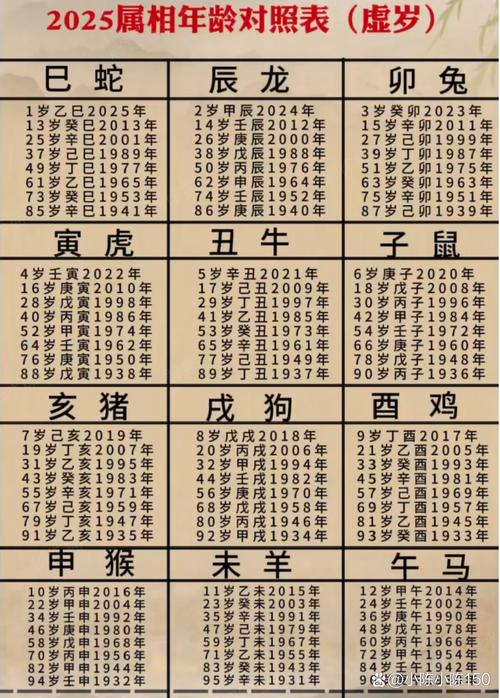 2025属相年龄对照表（虚岁）
巳 蛇
1岁乙巳2025年
13岁癸巳2013年
25岁辛巳2001年
37岁己巳1989年
49岁丁巳1977年
61岁乙巳1965年
73岁癸巳1953年
85岁辛巳1941年
辰 龙
2岁甲辰2024年
14岁壬辰2012年
26岁庚辰2000年
38岁戊辰1988年
50岁丙辰1976年
62岁甲辰1964年
74岁壬辰1952年
86岁庚辰1940年
卯 兔
3岁癸卯2023年
15岁辛卯2011年
27岁己卯1999年
39岁丁卯1987年
51岁乙卯1975年
63岁癸卯1963年
75岁辛卯1951年
87岁己卯1939年
寅 虎
4岁壬寅2022年
16岁庚寅2010年
28岁戊寅1998年
40岁丙寅1986年
52岁甲寅1974年
64岁壬寅1962年
76岁庚寅1950年
88岁戊寅1938年
丑 牛
5岁辛丑2021年
17岁己丑2009年
29岁丁丑1997年
41岁乙丑1985年
53岁癸丑1973年
65岁辛丑1961年
77岁己丑1949年
89岁丁丑1937年
子 鼠
6岁庚子2020年
18岁戊子2008年
30岁丙子1996年
42岁甲子1984年
54岁壬子1972年
66岁庚子1960年
78岁戊子1948年
90岁丙子1936年
亥 猪
7岁己亥2019年
19岁丁亥2007年
31岁乙亥1995年
43岁癸亥1983年
55岁辛亥1971年
67岁己亥1959年
79岁丁亥1947年
91岁乙亥1935年
戌 狗
8岁戊戌2018年
20岁丙戌2006年
32岁甲戌1994年
44岁壬戌1982年
56岁庚戌1970年
68岁戊戌1958年
80岁丙戌1946年
92岁甲戌1934年
酉 鸡
9岁丁酉2017年
21岁乙酉2005年
33岁癸酉1993年
45岁辛酉1981年
57岁己酉1969年
69岁丁酉1957年
81岁乙酉1945年
93岁癸酉1933年
申 猴
10岁丙申2016年
22岁甲申2004年
34岁壬申1992年
46岁庚申1980年
58岁戊申1968年
70岁丙申1956年
82岁甲申1944年
94岁壬申1932年
未 羊
11岁乙未2015年
23岁癸未2003年
35岁辛未1991年
47岁己未1979年
59岁丁未1967年
71岁乙未1955年
83岁癸未1943年
95岁辛未1931年
午 马
12岁甲午2014年
24岁壬午2002年
36岁庚午1990年
48岁戊午1978年
60岁丙午1966年
72岁甲午1954年
84岁壬午1942年
@小陈小陈150